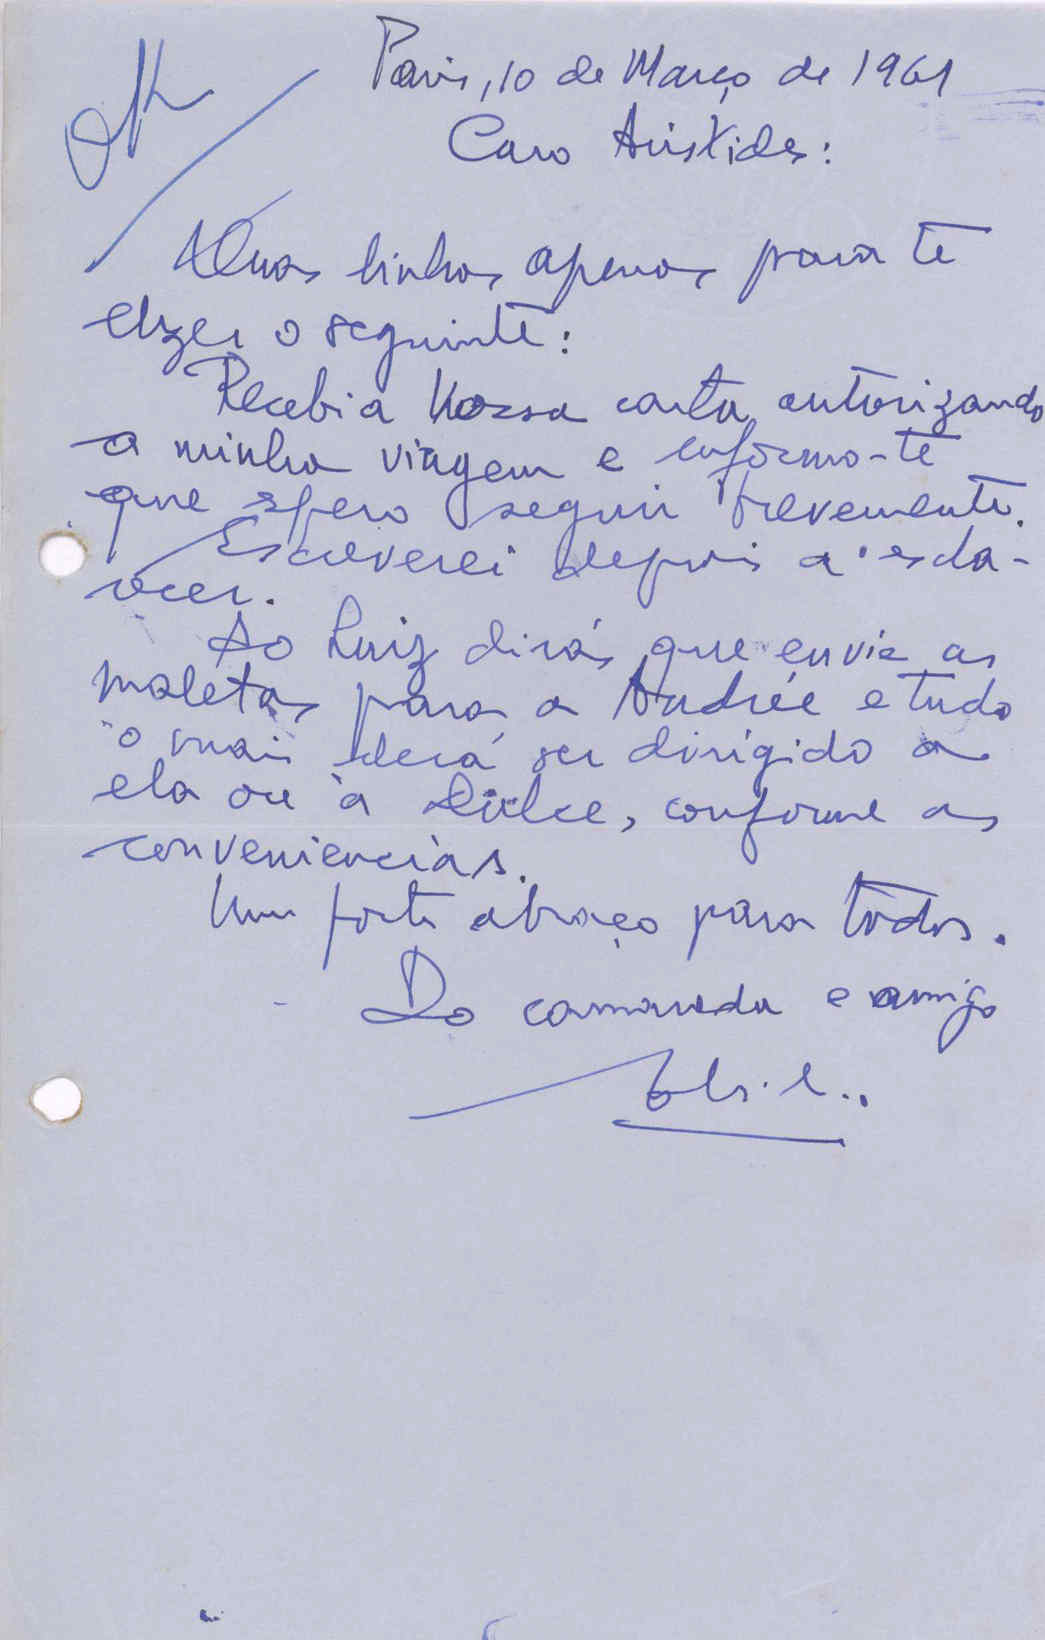 OK
Paris, 10 de Março de 1961
Caro Aristides:
Duas linhas apenas para te
dizer o seguinte:
Recebi a vossa carta autorizando
a minha viagem e informo-te
que espero seguir brevemente.
Escreverei depois a escla-
recer.
Ao Luiz dirás que envie as
maletas para a Andrée e tudo
o mais deverá ser dirigido a
ela ou à Dulce, conforme as
conveniencias.
Um forte abraço para todos.
Do camarada e amigo